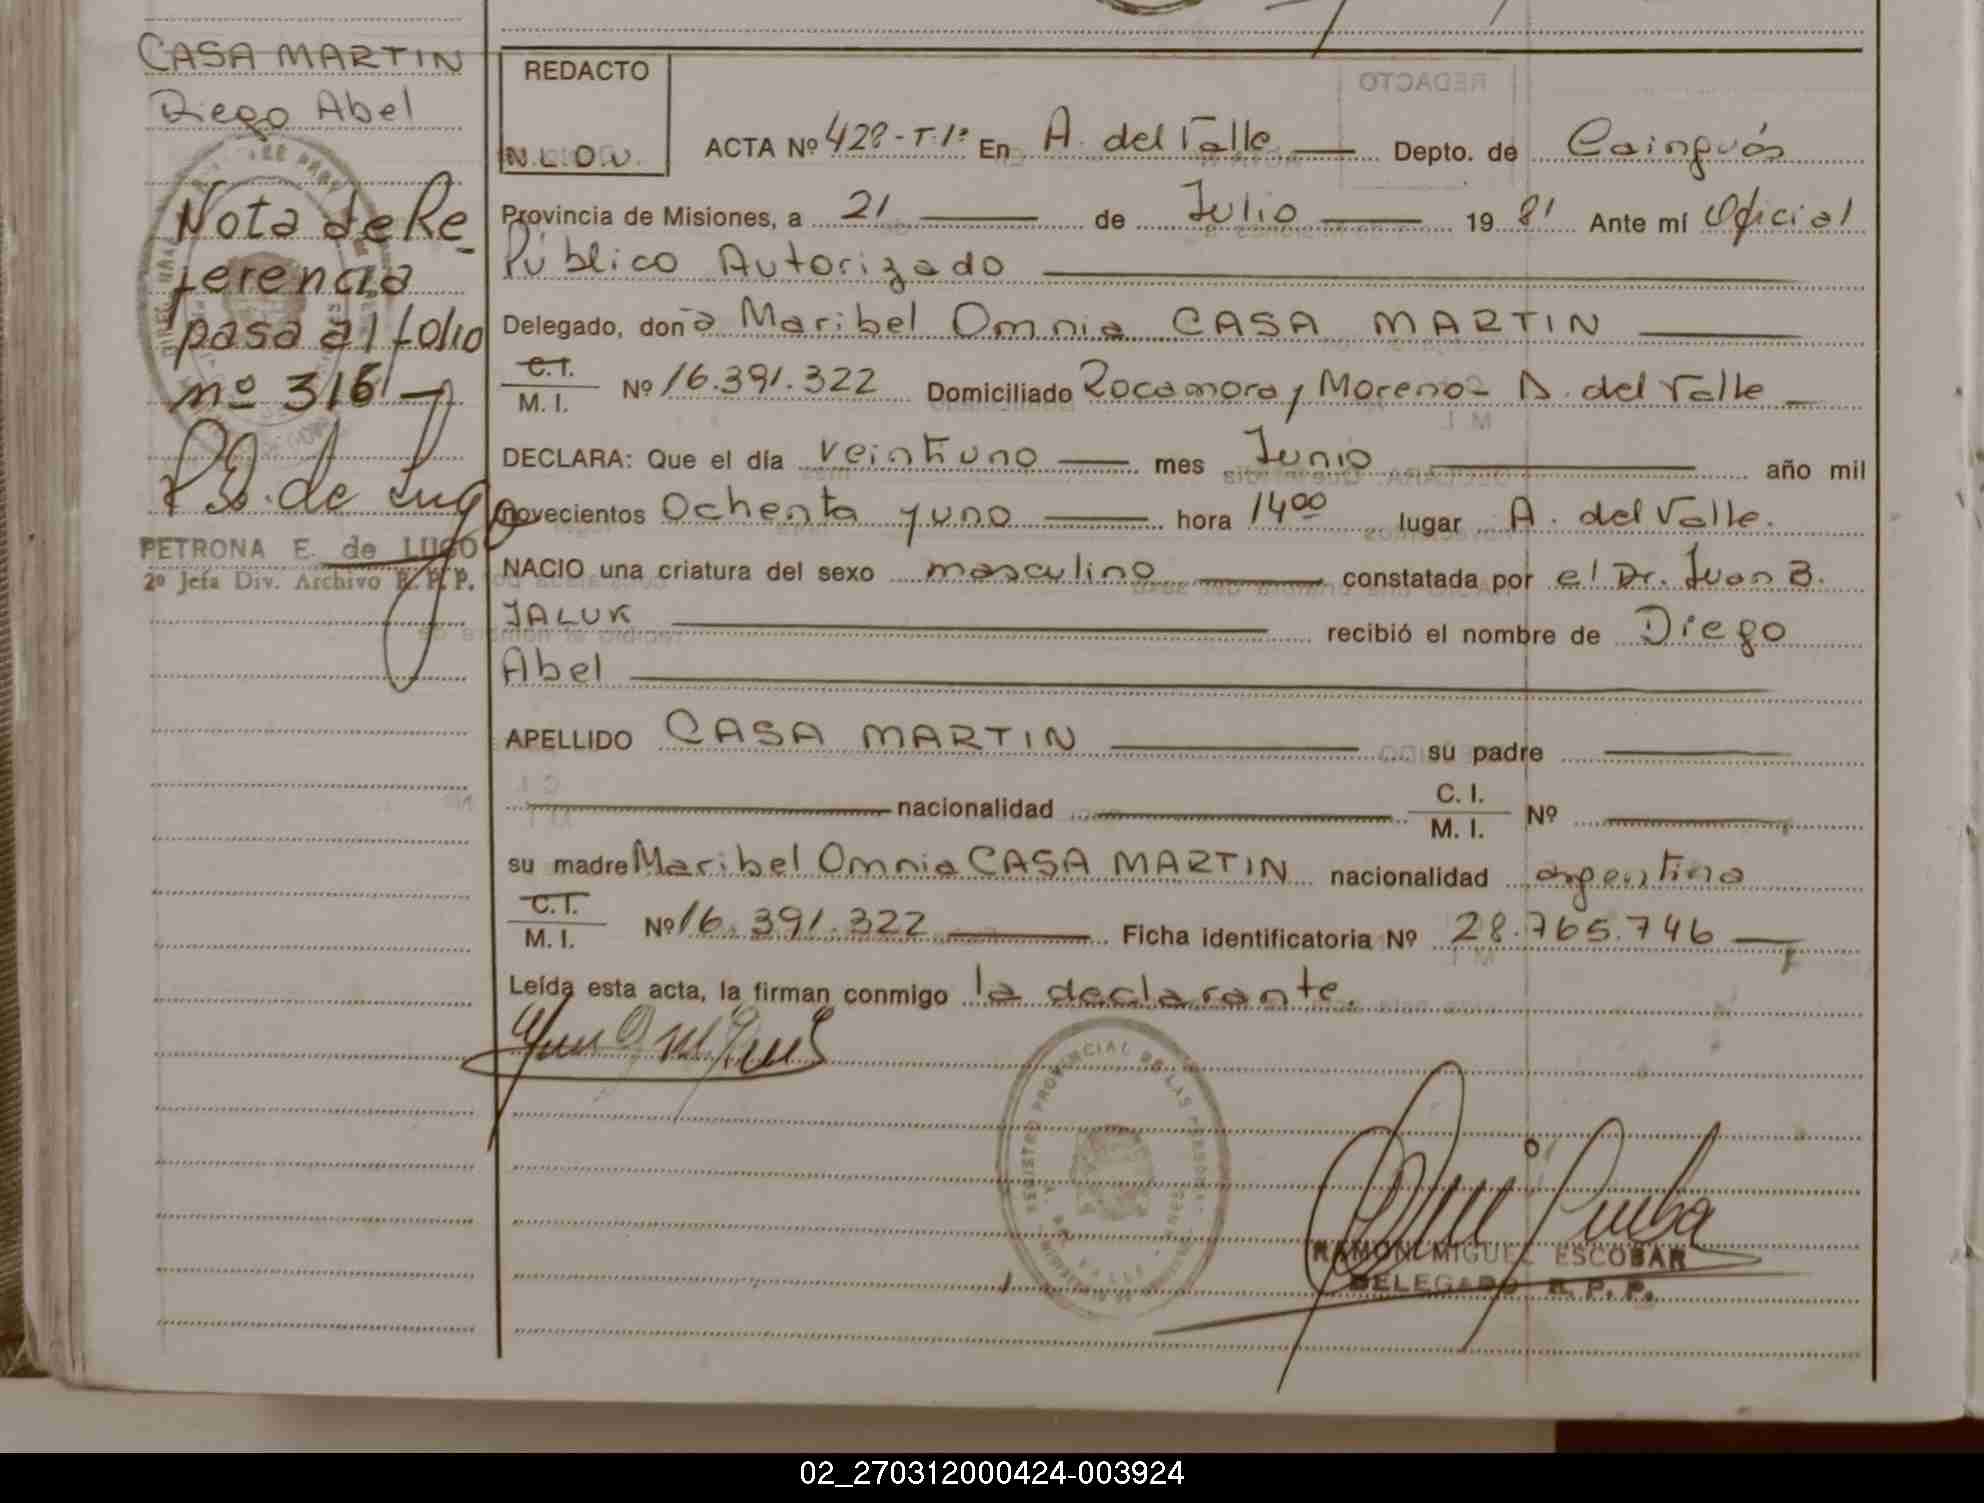 CASA MARTIN
Diego Abel
Nota de Re_
ferencia
pasa al folio
nº 316 -
PETRONA E. de LUGO
2º Jefa Div. Archivo R. P. P.
REDACTO
N. L. O. V.
ACTA Nº 428-T.1º En A. del Valle Depto. de Cainguás
Provincia de Misiones, a 21 de Julio 1981 Ante mí Oficial
Público Autorizado
Delegado, doña Maribel Omnia CASA MARTIN
C.I.
M. I. Nº 16.391.322 Domiciliado Rocamora y Moreno - A. del Valle
DECLARA: Que el día veintiuno mes Junio año mil
novecientos Ochenta y uno hora 14 00 lugar A. del Valle.
NACIO una criatura del sexo masculino constatada por el Dr. Juan B.
JALUK recibió el nombre de Diego
Abel
APELLIDO CASA MARTIN su padre
nacionalidad C. I.
M. I. Nº
su madre Maribel Omnia CASA MARTIN nacionalidad argentina
C.I.
M. I. Nº 16.391.322 Ficha identificatoria Nº 28.765.746
Leída esta acta, la firman conmigo la declarante.
REGISTRO PROVINCIAL DE LAS PERSONAS
RAMON MIGUEL ESCOBAR
DELEGADO R. P. P.
02_270312000424-003924